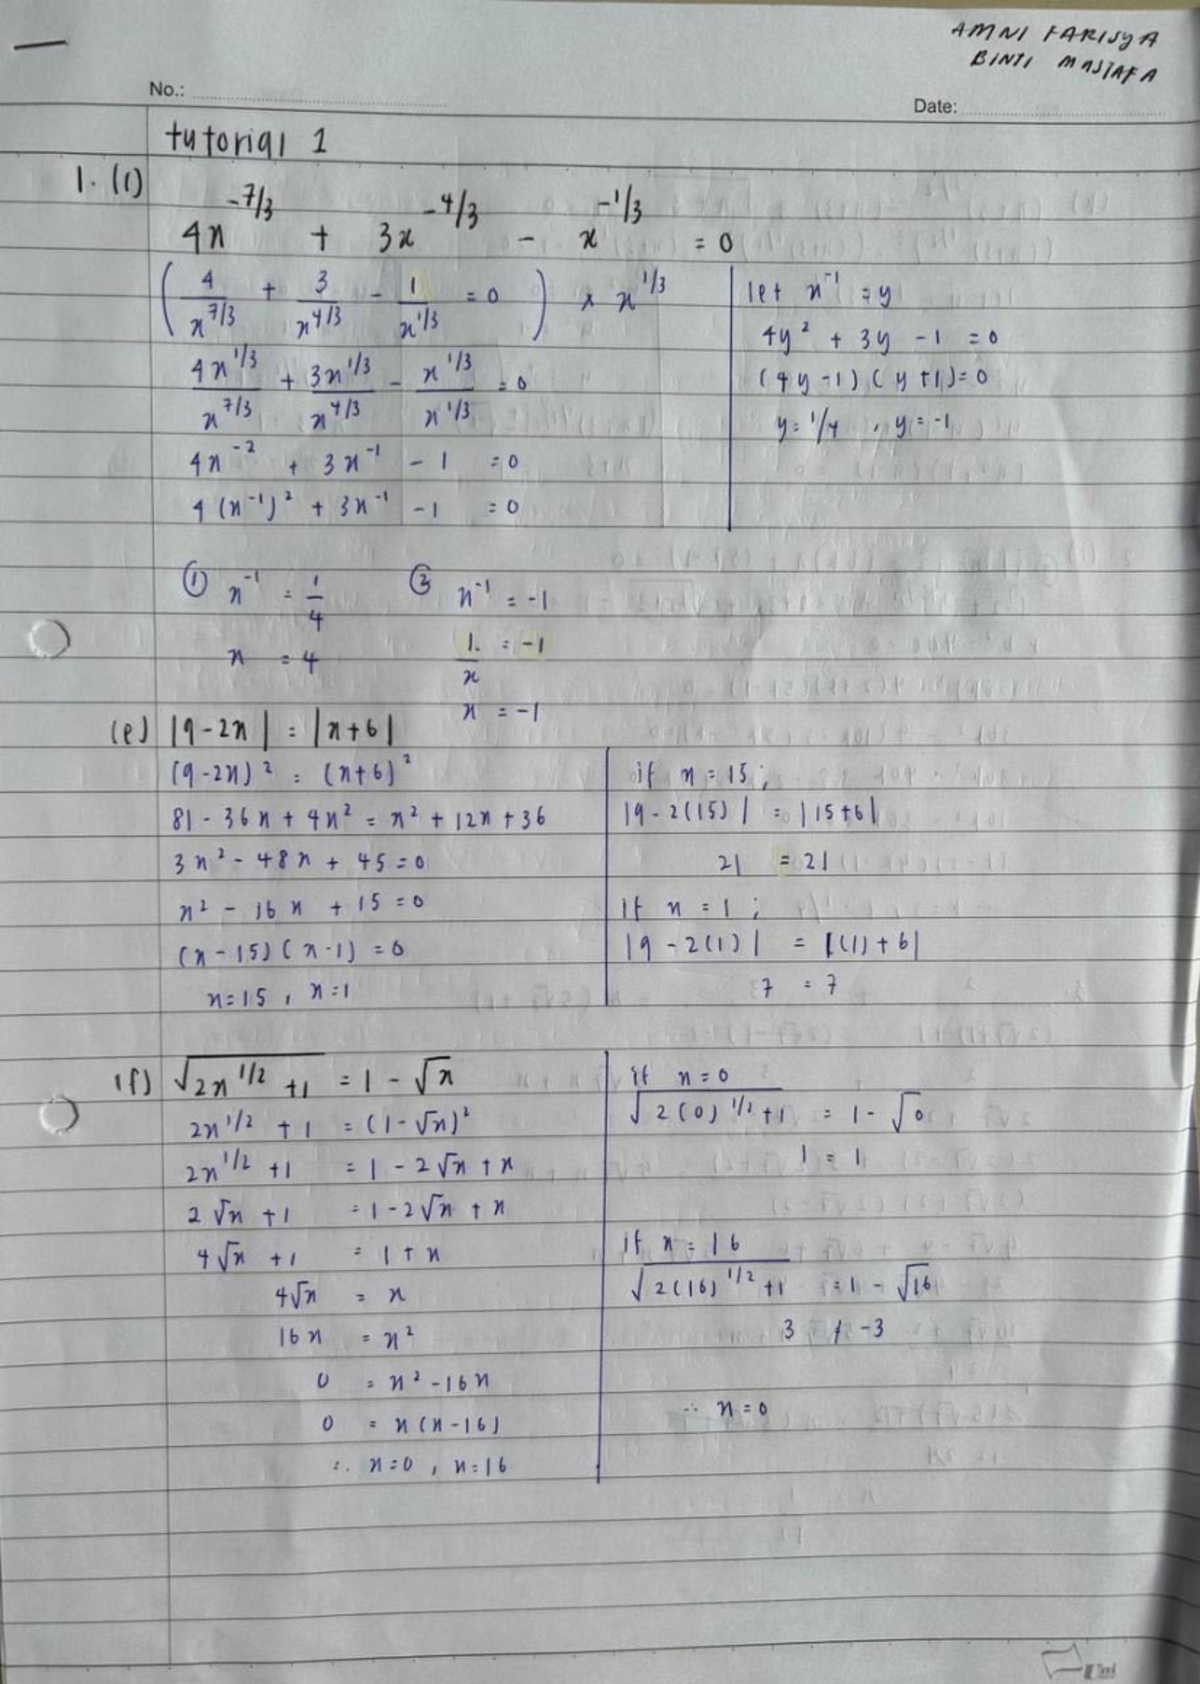 AMNI FARISYA
BINTI MASTAFA
No.:
Date:
tutorial 1
1. (i)
4x^{-7/3} + 3x^{-4/3} - x^{-1/3} = 0
(4/x^{7/3} + 3/x^{4/3} - 1/x^{1/3} = 0) × x^{1/3}
4x^{1/3}/x^{7/3} + 3x^{1/3}/x^{4/3} - x^{1/3}/x^{1/3} = 0
4x^{-2} + 3x^{-1} - 1 = 0
4(x^{-1})² + 3x^{-1} - 1 = 0
let x^{-1} = y
4y² + 3y - 1 = 0
(4y-1)(y+1) = 0
y = 1/4 , y = -1
① x^{-1} = 1/4
x = 4
② x^{-1} = -1
1/x = -1
x = -1
(e) |9-2x| = |x+6|
(9-2x)² = (x+6)²
81 - 36x + 4x² = x² + 12x + 36
3x² - 48x + 45 = 0
x² - 16x + 15 = 0
(x-15)(x-1) = 0
x=15 , x=1
if x = 15;
|9-2(15)| = |15+6|
21 = 21
if x = 1;
|9-2(1)| = |(1)+6|
7 = 7
(f) √(2x^{1/2} + 1) = 1 - √x
2x^{1/2} + 1 = (1-√x)²
2x^{1/2} + 1 = 1 - 2√x + x
2√x + 1 = 1 - 2√x + x
4√x + 1 = 1 + x
4√x = x
16x = x²
0 = x² - 16x
0 = x(x-16)
∴ x=0 , x=16
if x=0
√(2(0)^{1/2} + 1) = 1 - √0
1 = 1
if x = 16
√(2(16)^{1/2} + 1) = 1 - √16
3 ≠ -3
∴ x=0